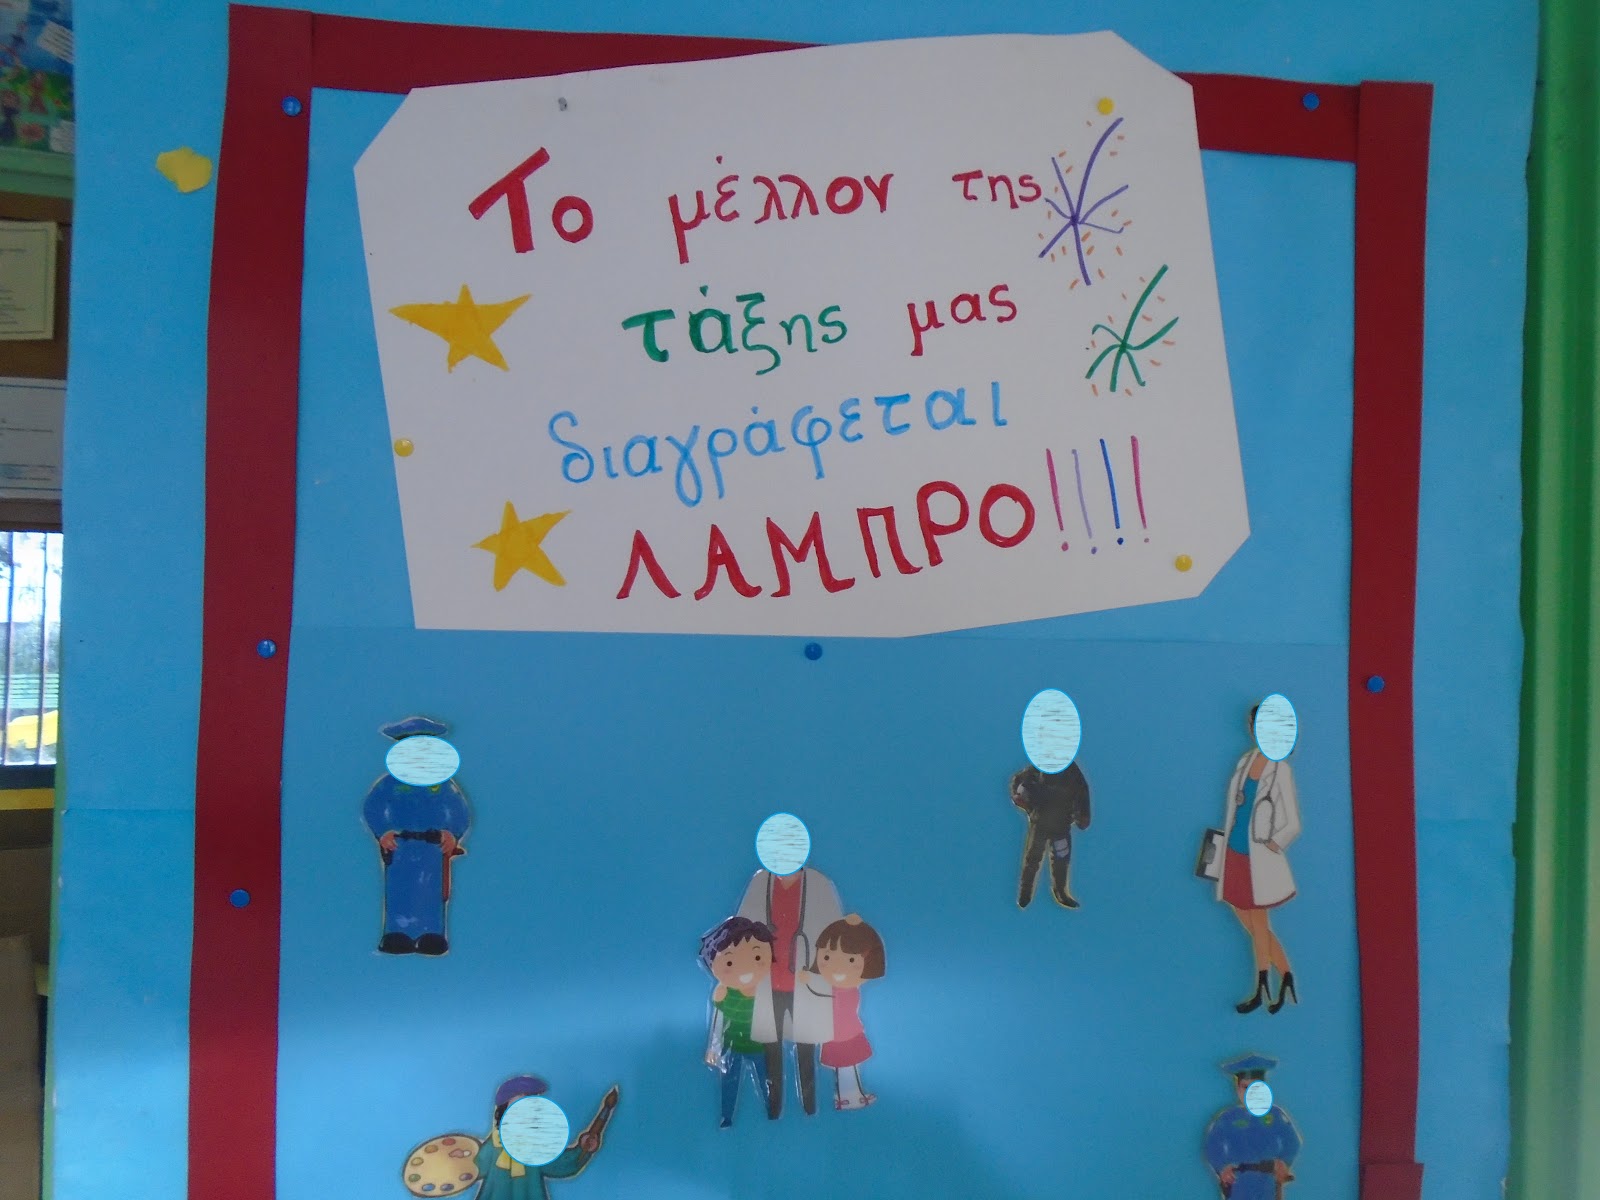 Το μέλλον της
τάξης μας
διαγράφεται
ΛΑΜΠΡΟ!!!!